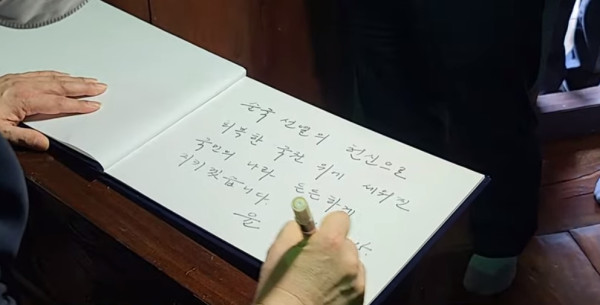 순국 선열의 헌신으로
회복한 국권 위에 세워진
국민의 나라. 든든하게
지키겠습니다.
윤